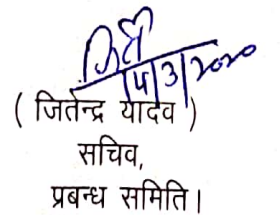 14/3/2020
( जितेन्द्र यादव )
सचिव,
प्रबन्ध समिति।